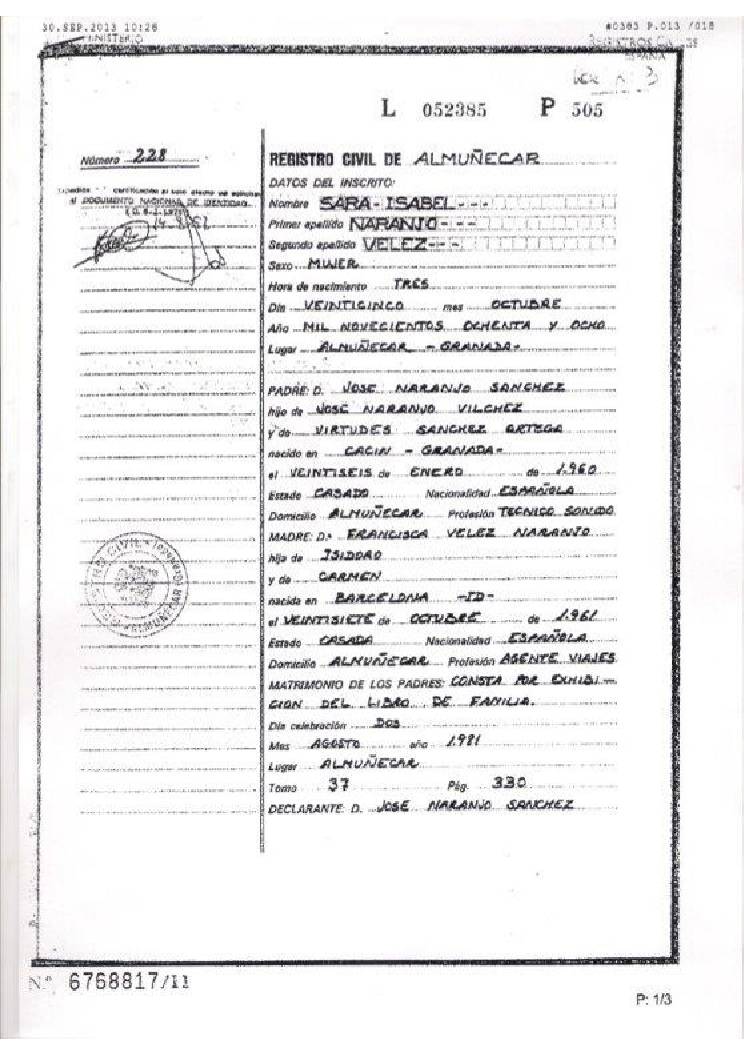 30.SEP.2013 10:26 #0383 P.013 /018
MINISTERIO
REGISTROS
L 052385 P 505
Número 228
DOCUMENTO NACIONAL DE IDENTIDAD
REGISTRO CIVIL DE ALMUÑECAR
DATOS DEL INSCRITO:
Nombre SARA-ISABEL---
Primer apellido NARANJO---
Segundo apellido VELEZ---
Sexo MUJER
Hora de nacimiento TRES
Día VEINTICINCO mes OCTUBRE
Año MIL NOVECIENTOS OCHENTA Y OCHO
Lugar ALMUÑECAR - GRANADA-
PADRE: D. JOSE NARANJO SANCHEZ
hijo de JOSE NARANJO VILCHEZ
y de VIRTUDES SANCHEZ ORTEGA
nacido en CACIN - GRANADA-
el VEINTISEIS de ENERO de 1.960
Estado CASADO Nacionalidad ESPAÑOLA
Domicilio ALMUÑECAR Profesión TECNICO SONIDO
MADRE: D.ª FRANCISCA VELEZ NARANJO
hija de ISIDORO
y de CARMEN
nacida en BARCELONA -ID-
el VEINTISIETE de OCTUBRE de 1.961
Estado CASADA Nacionalidad ESPAÑOLA
Domicilio ALMUÑECAR Profesión AGENTE VIAJES
MATRIMONIO DE LOS PADRES: CONSTA POR EXHIBI-
CION DEL LIBRO DE FAMILIA.
Día celebración DOS
Mes AGOSTO año 1.981
Lugar ALMUÑECAR
Tomo 37 Pág. 330
DECLARANTE: D. JOSE NARANJO SANCHEZ
N.º 6768817/11
P: 1/3